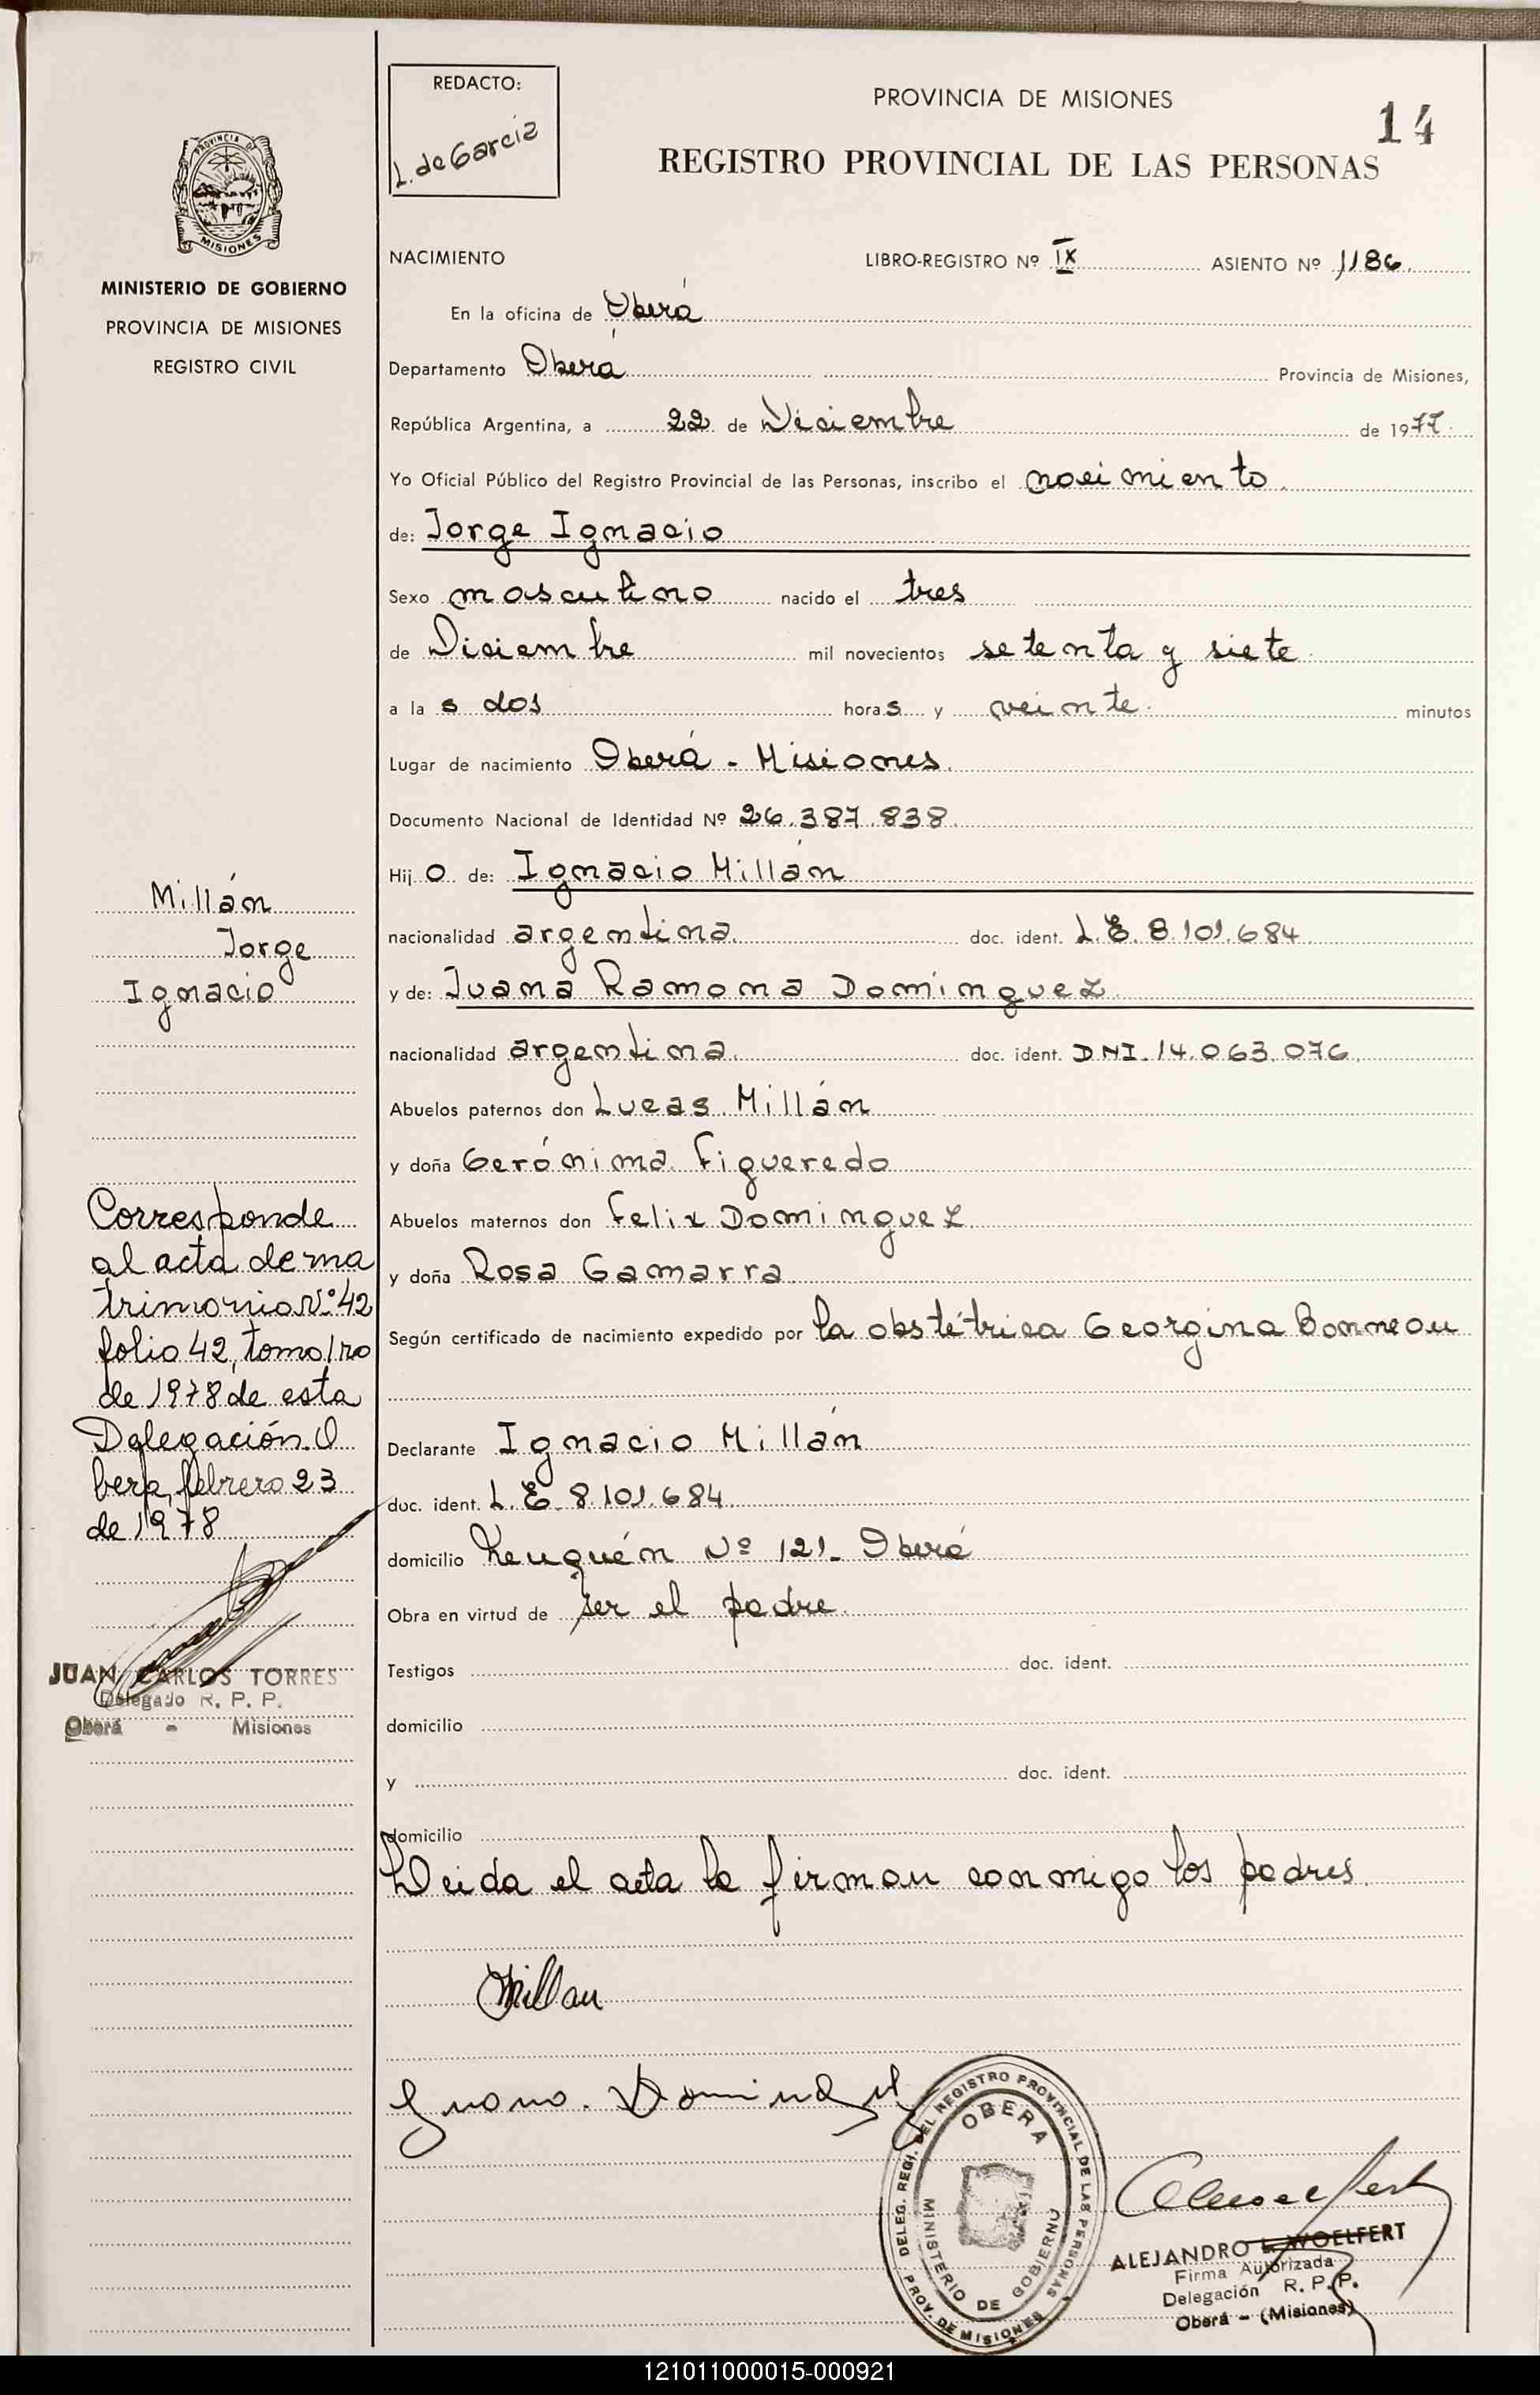 REDACTO:
L. de García
PROVINCIA DE MISIONES
14
REGISTRO PROVINCIAL DE LAS PERSONAS
PROVINCIA DE
MISIONES
MINISTERIO DE GOBIERNO
PROVINCIA DE MISIONES
REGISTRO CIVIL
NACIMIENTO LIBRO-REGISTRO Nº IX ASIENTO Nº 1186.
En la oficina de Oberá
Departamento Oberá Provincia de Misiones,
República Argentina, a 22 de Diciembre de 1977.
Yo Oficial Público del Registro Provincial de las Personas, inscribo el nacimiento.
de: Jorge Ignacio
Sexo masculino nacido el tres
de Diciembre mil novecientos setenta y siete
a las dos horas y veinte minutos
Lugar de nacimiento Oberá - Misiones.
Documento Nacional de Identidad Nº 26.387.838.
Hijo de: Ignacio Millán
nacionalidad argentina. doc. ident. L.E. 8.101.684
y de: Juana Ramona Dominguez.
nacionalidad argentina. doc. ident. DNI. 14.063.076.
Abuelos paternos don Lucas Millán
y doña Gerónima Figueredo
Abuelos maternos don Felix Dominguez
y doña Rosa Gamarra.
Según certificado de nacimiento expedido por la obstétrica Georgina Bonneau
Declarante Ignacio Millán
doc. ident. L.E. 8.101.684
domicilio Neuquén Nº 121- Oberá
Obra en virtud de ser el padre.
Testigos doc. ident.
domicilio
y doc. ident.
domicilio
Leida el acta la firman conmigo los padres.
Millan
Juana. Dominguez
Millán
Jorge
Ignacio
Corresponde
al acta de ma
trimonio Nº 42
folio 42, tomo 1ro
de 1978 de esta
Delegación. O
bera, febrero 23
de 1978
JUAN CARLOS TORRES
Delegado R. P. P.
Oberá - Misiones
DELEG. REGI. DEL REGISTRO PROVINCIAL DE LAS PERSONAS
OBERA
MINISTERIO DE GOBIERNO
PROV. DE MISIONES
ALEJANDRO L. WOELFERT
Firma Autorizada
Delegación R. P. P.
Oberá - (Misiones)
121011000015-000921